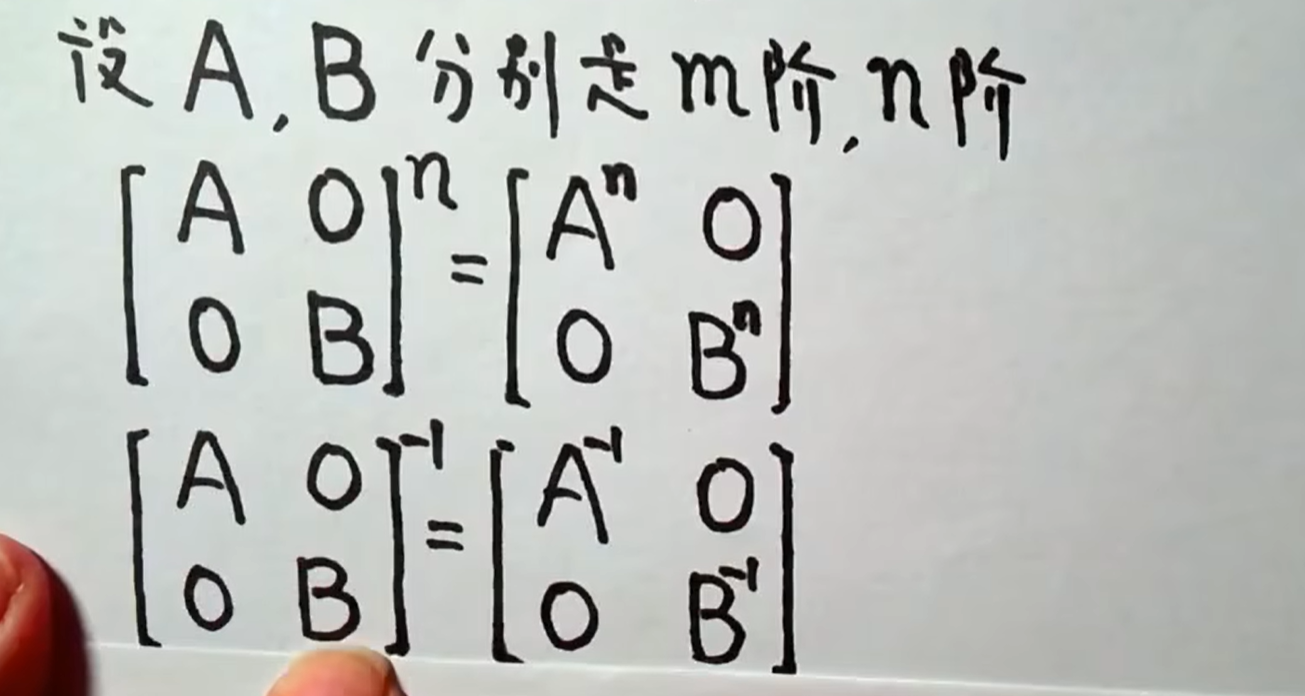 设A,B分别是m阶,n阶
[A O; O B]^n = [A^n O; O B^n]
[A O; O B]^-1 = [A^-1 O; O B^-1]